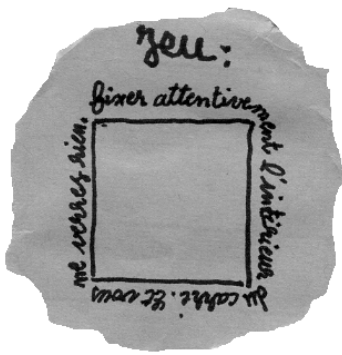 Jeu:
fixer attentivement
l'intérieur
du carré. Et vous
ne verrez rien.